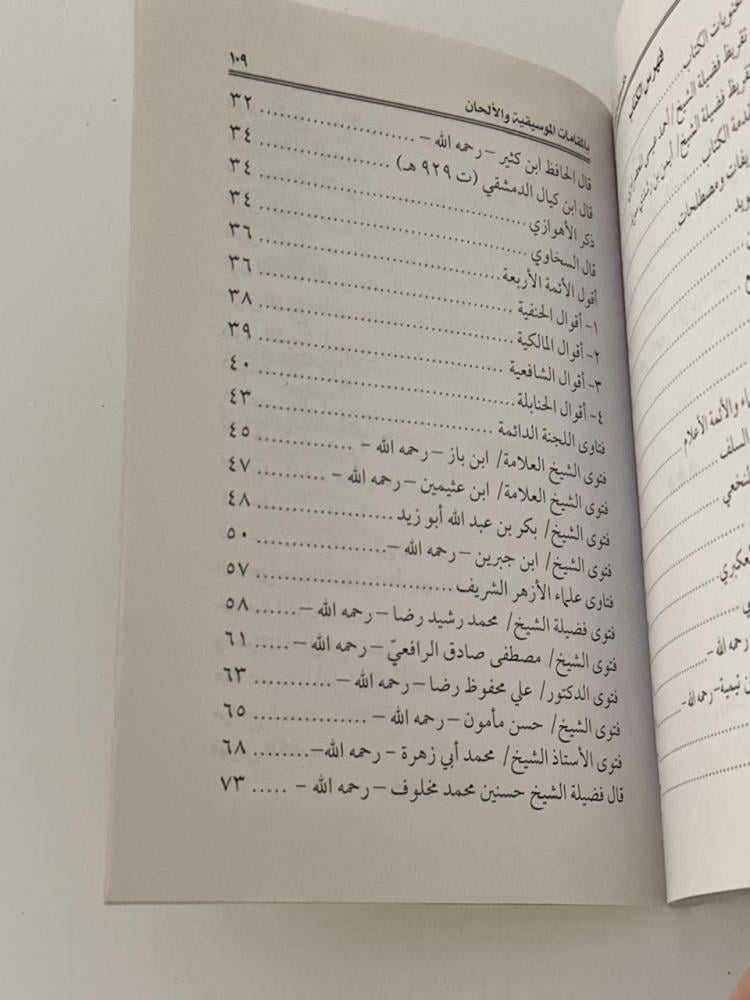 محتويات الكتاب
فهرس الكتاب
تقريظ فضيلة الشيخ/ أحمد عيسى
تقريظ فضيلة الشيخ/ أيمن بن
مقدمة الكتاب
ومصطلحات
والأئمة الأعلام
السلف
النخعي
العكبري
رحمه الله –
تيمية – رحمه الله –
١٠٩
بالمقامات الموسيقية والألحان
قال الحافظ ابن كثير – رحمه الله – ٣٢
قال ابن كيال الدمشقي (ت ٩٢٩ هـ) ٣٤
ذكر الأهوازي ٣٤
قال السخاوي ٣٤
أقول الأئمة الأربعة ٣٦
١- أقوال الحنفية ٣٦
٢- أقوال المالكية ٣٨
٣- أقوال الشافعية ٣٩
٤- أقوال الحنابلة ٤٠
فتاوى اللجنة الدائمة ٤٣
فتوى الشيخ العلامة/ ابن باز – رحمه الله – ٤٥
فتوى الشيخ العلامة/ ابن عثيمين – رحمه الله – ٤٧
فتوى الشيخ/ بكر بن عبد الله أبو زيد ٤٨
فتوى الشيخ/ ابن جبرين – رحمه الله – ٥٠
فتاوى علماء الأزهر الشريف ٥٧
فتوى فضيلة الشيخ/ محمد رشيد رضا – رحمه الله – ٥٨
فتوى الشيخ/ مصطفى صادق الرافعيّ – رحمه الله – ٦١
فتوى الدكتور/ علي محفوظ رضا – رحمه الله – ٦٣
فتوى الشيخ/ حسن مأمون – رحمه الله – ٦٥
فتوى الأستاذ الشيخ/ محمد أبي زهرة – رحمه الله – ٦٨
قال فضيلة الشيخ حسنين محمد مخلوف – رحمه الله – ٧٣